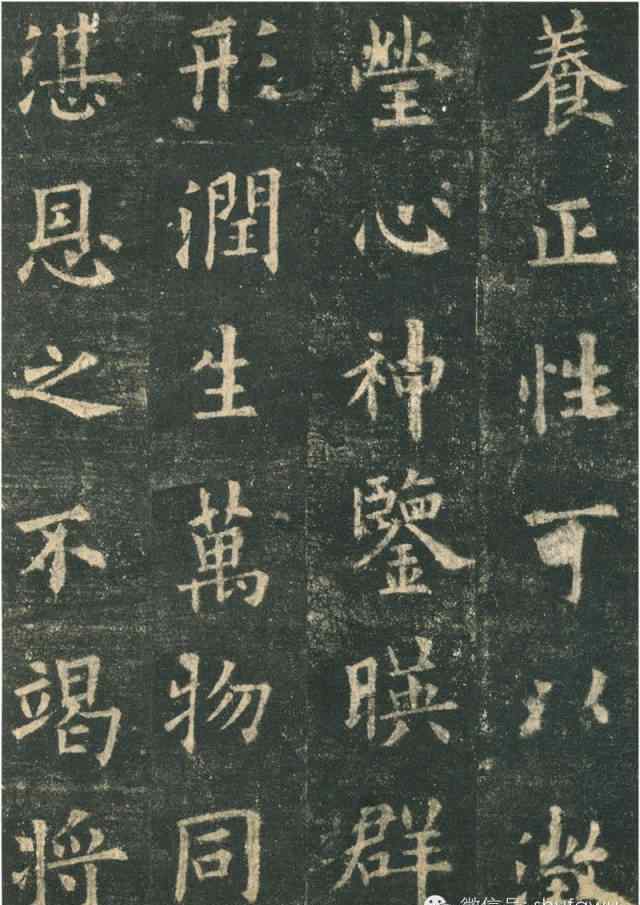 養正性可以澂
瑩心神鑒暎群
形潤生萬物同
湛恩之不竭將
微信号: shufawu